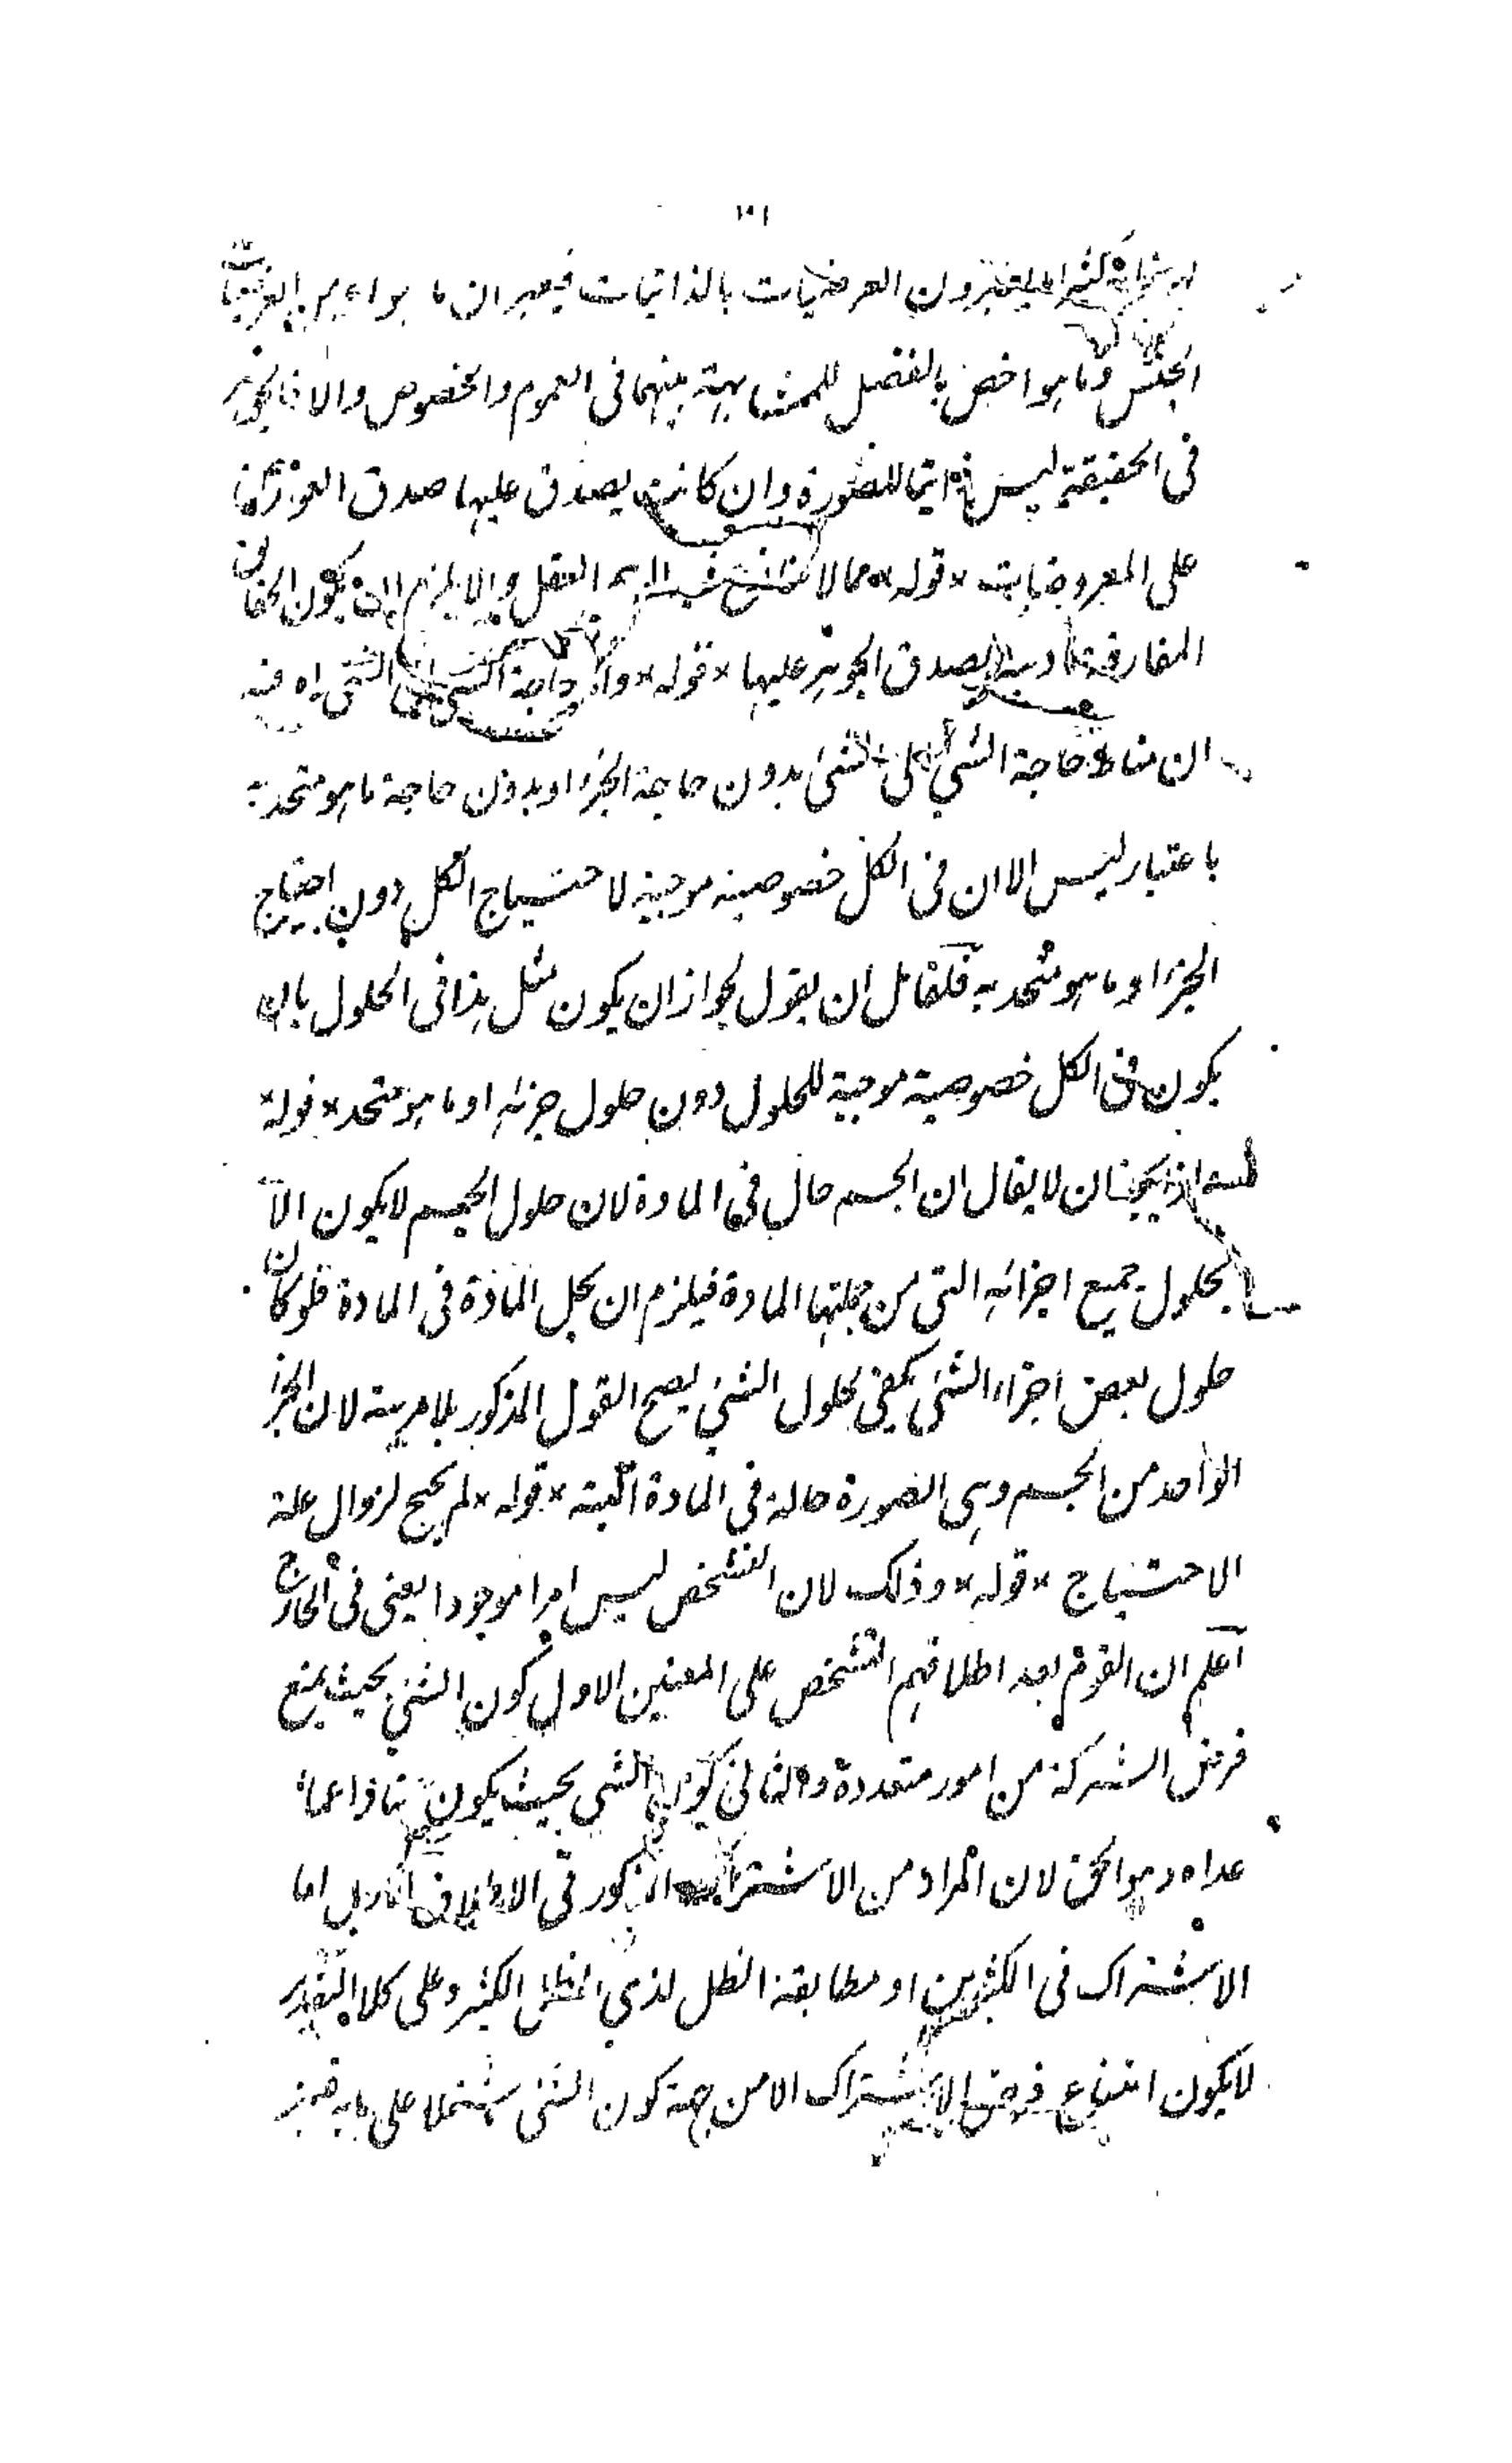 كثيرا ما يعتبرون العرضيات بالذاتيات فيعبرون ما هو اعم من العرضيات
الجنس وما هو اخص بالفصل للمشابهة بينهما فى العموم والخصوص والا فالجوهر
فى الحقيقة ليس ذاتيا للصورة وان كانت يصدق عليها صدق العوارض
على المعروضات * قوله * مما لا العقل والا يلزم ان يكون الحقائق
المفارقة مادية لصدق الجوهر عليها * قوله * واما حاجة الشئ الى الشئ اه فيه
ان مناط حاجة الشئ الى الشئ بدون حاجة الجزء او بدون حاجة ما هو متحد به
باعتبار ليس الا ان فى الكل خصوصية موجبة لاحتياج الكل دون احتياج
الجزء او ما هو متحد به فلقائل ان يقول لجواز ان يكون مثل هذا فى الحلول بان
يكون فى الكل خصوصية موجبة للحلول دون حلول جزئه او ما هو متحد * قوله *
ان لا يقال ان الجسم حال فى المادة لان حلول الجسم لا يكون الا
بحلول جميع اجزائه التى من جملتها المادة فيلزم ان يحل المادة فى المادة فلو كان
حلول بعض اجزاء الشئ يكفى لحلول الشئ يصح القول المذكور بلا مرية لان الجزء
الواحد من الجسم وهى الصورة حالة فى المادة البتة * قوله * لم يحتج لزوال علة
الاحتياج * قوله * وذلك لان التشخص ليس امرا موجودا يعنى فى الخارج
اعلم ان القوم بعد اطلاقهم التشخص على المعنين الاول كون الشئ بحيث يمنع
فرض الشركة من امور متعددة والثانى كون الشئ بحيث يكون ممتازا عما
عداه وهو الحق لان المراد من الاشتراك المذكور فى الاطلاق الاول اما
الاشتراك فى الكثيرين او مطابقة الظل لذى الظل الكثير وعلى كلا التقدير
لا يكون امتناع فرض الاشتراك الا من جهة كون الشئ مشتملا على ما به